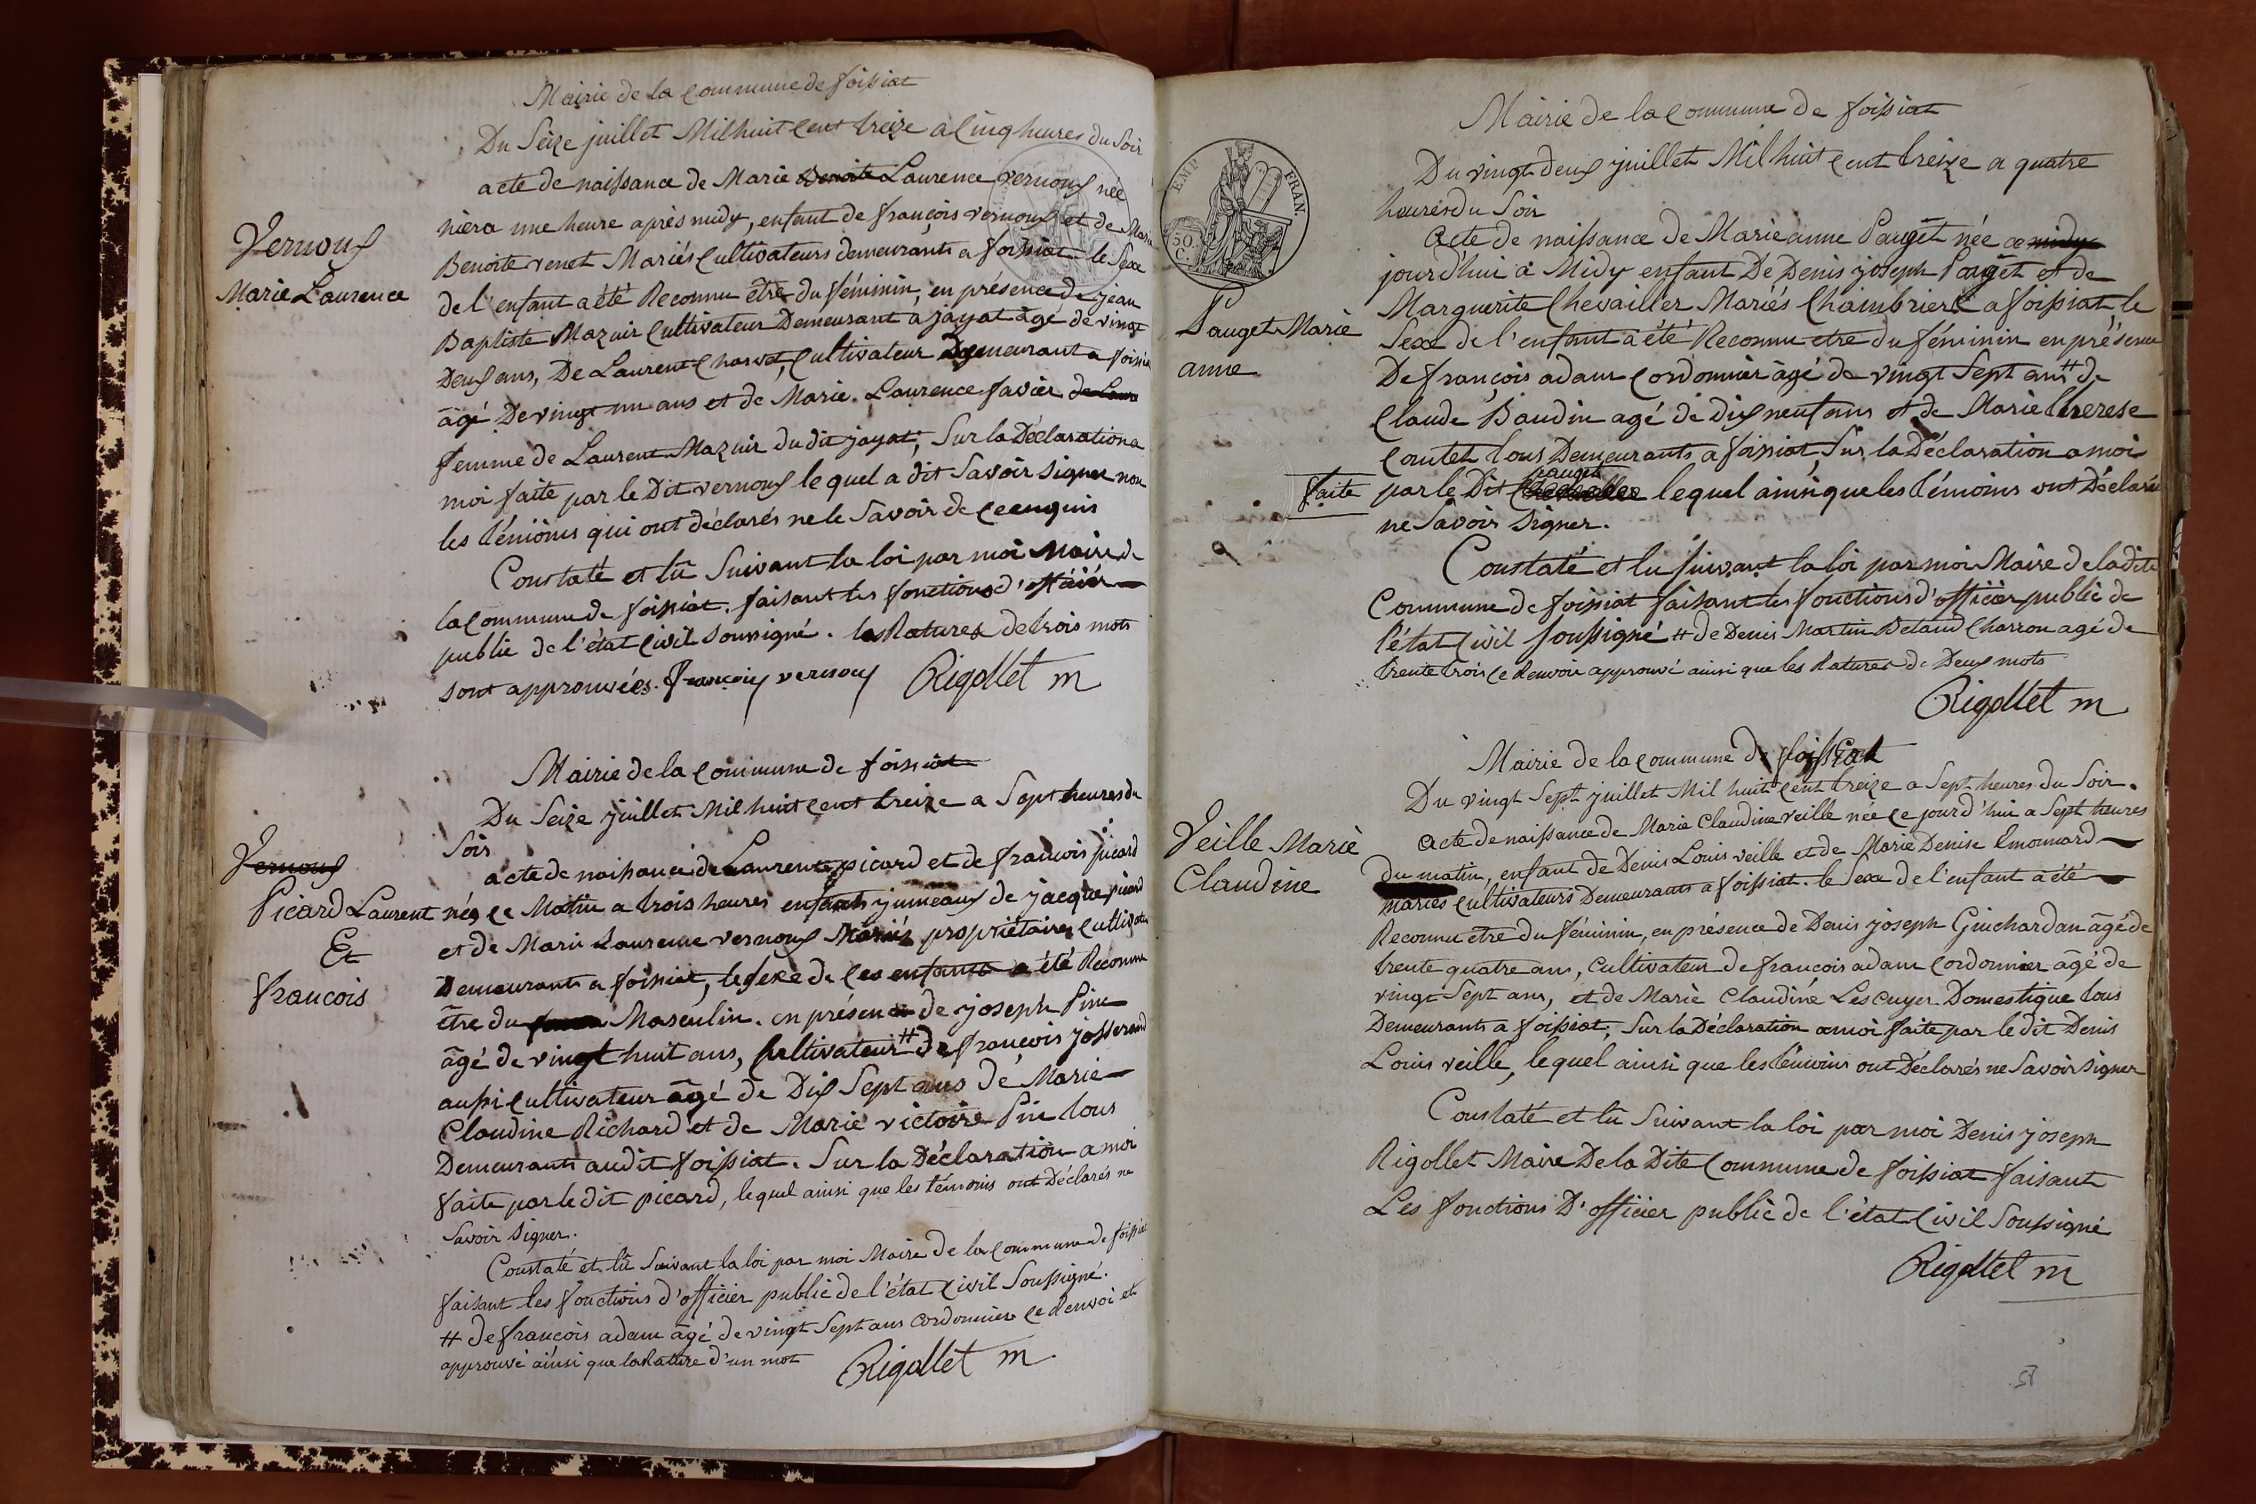 Mairie de la commune de foissiat
Du Seize juillet Mil huit cent treize a cinq heures du Soir
acte de naissance de Marie Benoite Laurence vernoux née
hiera une heure après midy, enfant de françois vernoux et de Marie
Vernoux
Marie Laurence
Benoite venet Mariés Cultivateurs demeurants a foissiat le Sexe
de l'enfant a été Reconnu être du féminin, en présence de jean
Baptiste Mazuir Cultivateur Demeurant a jayat âgé de vingt
Deux ans, De Laurent Charvet, Cultivateur Demeurant a foissiat
âgé De vingt un ans et de Marie Laurence favier
femme de Laurent Mazuir du dit jayat, Sur la Déclaration a
moi faite par le Dit vernoux lequel a dit Savoir Signer non
les témoins qui ont déclarés ne le Savoir de ce enquis
Constaté et lû Suivant la loi par moi Maire de
la Commune de foissiat. faisant les fonctions d'officier
public de l'état Civil Soussigné. les Ratures de trois mots
sont approuvées. françois vernoux Rigollet m
Mairie de la commune de foissiat
Du Seize juillet Mil huit cent treize a Sept heures du
Soir
acte de naissance de Laurent picard et de francois picard
Vernoux
Picard Laurent
Et
francois
nés ce Matin a trois heures enfants jumeaux de jacque picard
et de Marie Laurence vernoux Mariés propriétaires Cultivateurs
Demeurants a foissiat, le sexe de ces enfants a été Reconnu
être du Masculin. en présence de joseph Pine
âgé de vingt huit ans, Cultivateur # de francois josserand
aussi Cultivateur âgé de Dix Sept ans de Marie
Claudine Richard et de Marie victoire Pine tous
Demeurants audit foissiat. Sur la Déclaration a moi
faite par le dit picard, lequel ainsi que les témoins ont Déclarés ne
Savoir Signer.
Constaté et lû Suivant la loi par moi Maire de la Commune de foissiat
faisant les fonctions d'officier public de l'état Civil Soussigné.
# de francois adam âgé de vingt Sept ans cordonnier ce Renvoi et
approuvé ainsi que la Rature d'un mot Rigollet m
Mairie de la Commune de foissiat
Du vingt deux juillet Mil huit cent treize a quatre
heures du Soir
EMP. FRAN.
50. C.
Acte de naissance de Marie anne Pauget née ce midy
jourd'hui à Midy enfant De Denis joseph Pauget et de
Marguerite Chevailler Mariés Chambriers a foissiat le
Pauget Marie
anne
Sexe de l'enfant a été Reconnu etre du féminin en présence
De françois adam Cordonnier âgé de vingt Sept ans # de
Claude Baudin agé de Dix neuf ans et de Marie therese
Coutet tous Demeurants a foissiat, Sur la Déclaration a moi
pauget
faite par le Dit lequel ainsi que les témoins ont Déclarés
ne Savoir Signer.
Constaté et lu Suivant la loi par moi Maire de la dite
Commune de foissiat faisant les fonctions d'officier public de
l'état Civil Soussigné # de Denis Martin Betaud Charron agé de
trente trois ce Renvoi approuvé ainsi que les Ratures de Deux mots
Rigollet m
Mairie de la commune de foissiat
Du vingt Sept juillet Mil huit cent treize a Sept heures du Soir.
Acte de naissance de Marie Claudine veille née ce jourd'hui a Sept heures
Veille Marie
Claudine
du matin, enfant de Denis Louis veille et de Marie Denise Emonnard
mariés Cultivateurs Demeurants a foissiat. le Sexe de l'enfant a été
Reconnu etre du féminin, en présence de Denis joseph Guichardan âgé de
trente quatre ans, Cultivateur de francois adam Cordonnier âgé de
vingt Sept ans, et de Marie Claudine Lescuyer Domestique tous
Demeurants a foissiat, Sur la Déclaration a moi faite par le dit Denis
Louis veille, lequel ainsi que les témoins ont Déclarés ne Savoir Signer
Constaté et lu Suivant la loi par moi Denis joseph
Rigollet Maire De la Dite Commune de foissiat faisant
Les fonctions D'officier public de l'état Civil Soussigné
Rigollet m